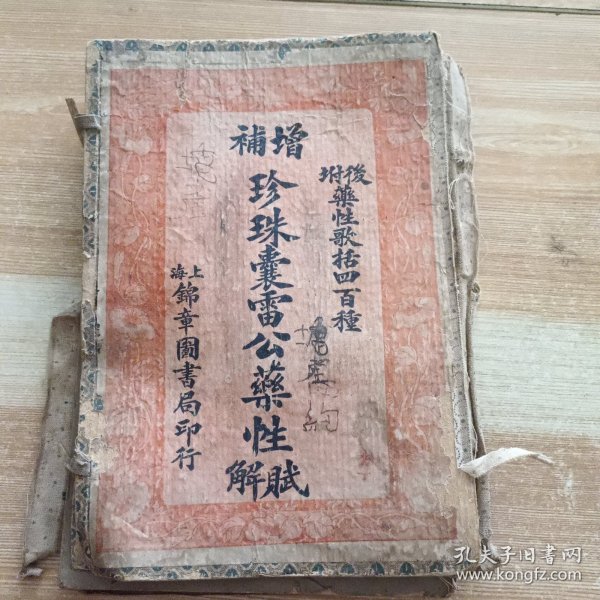 後附藥性歌括四百種
增補
珍珠囊雷公藥性
賦解
上海
錦章圖書局印行
孔夫子旧书网
www.kongfz.com